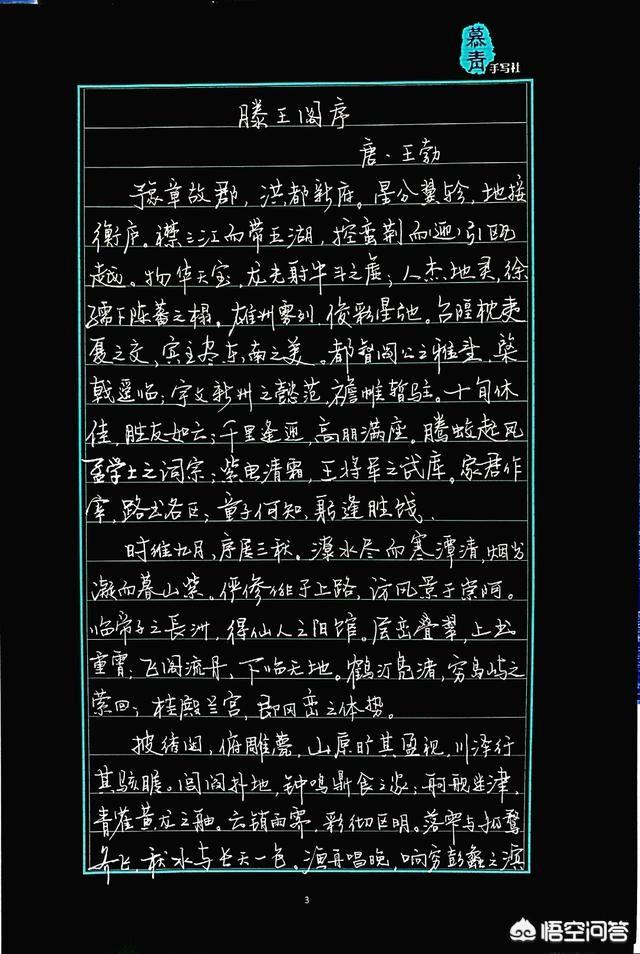 慕青
手写社
滕王阁序
唐·王勃
豫章故郡，洪都新府。星分翼轸，地接
衡庐。襟三江而带五湖，控蛮荆而引瓯
越。物华天宝，龙光射牛斗之墟；人杰地灵，徐
孺下陈蕃之榻。雄州雾列，俊彩星驰。台隍枕夷
夏之交，宾主尽东南之美。都督阎公之雅望，棨
戟遥临；宇文新州之懿范，襜帷暂驻。十旬休
佳，胜友如云；千里逢迎，高朋满座。腾蛟起凤
孟学士之词宗；紫电清霜，王将军之武库。家君作
宰，路出名区；童子何知，躬逢胜饯。
时维九月，序属三秋。潦水尽而寒潭清，烟光
凝而暮山紫。俨骖騑于上路，访风景于崇阿。
临帝子之长洲，得仙人之旧馆。层峦叠翠，上出
重霄；飞阁流丹，下临无地。鹤汀凫渚，穷岛屿之
萦回；桂殿兰宫，即冈峦之体势。
披绣闼，俯雕甍，山原旷其盈视，川泽纡
其骇瞩。闾阎扑地，钟鸣鼎食之家；舸舰迷津，
青雀黄龙之舳。云销雨霁，彩彻区明。落霞与孤鹜
齐飞，秋水与长天一色。渔舟唱晚，响穷彭蠡之滨
3
悟空问答